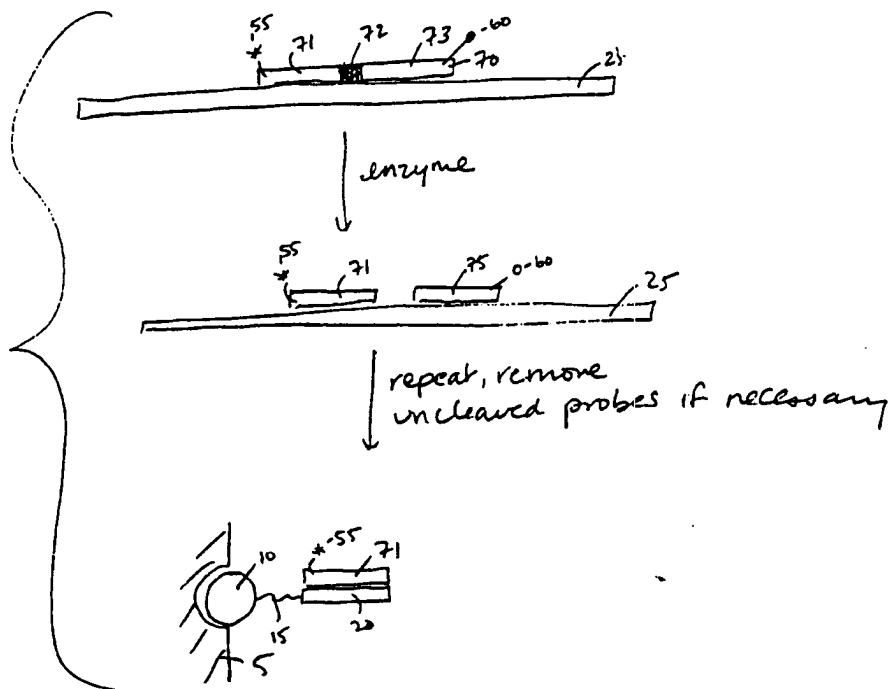 55 71 72 73 60
* 70
25
enzyme
55 71 75 60
* 25
repeat, remove
uncleaved probes if necessary
* 55 71
10
15 20
5